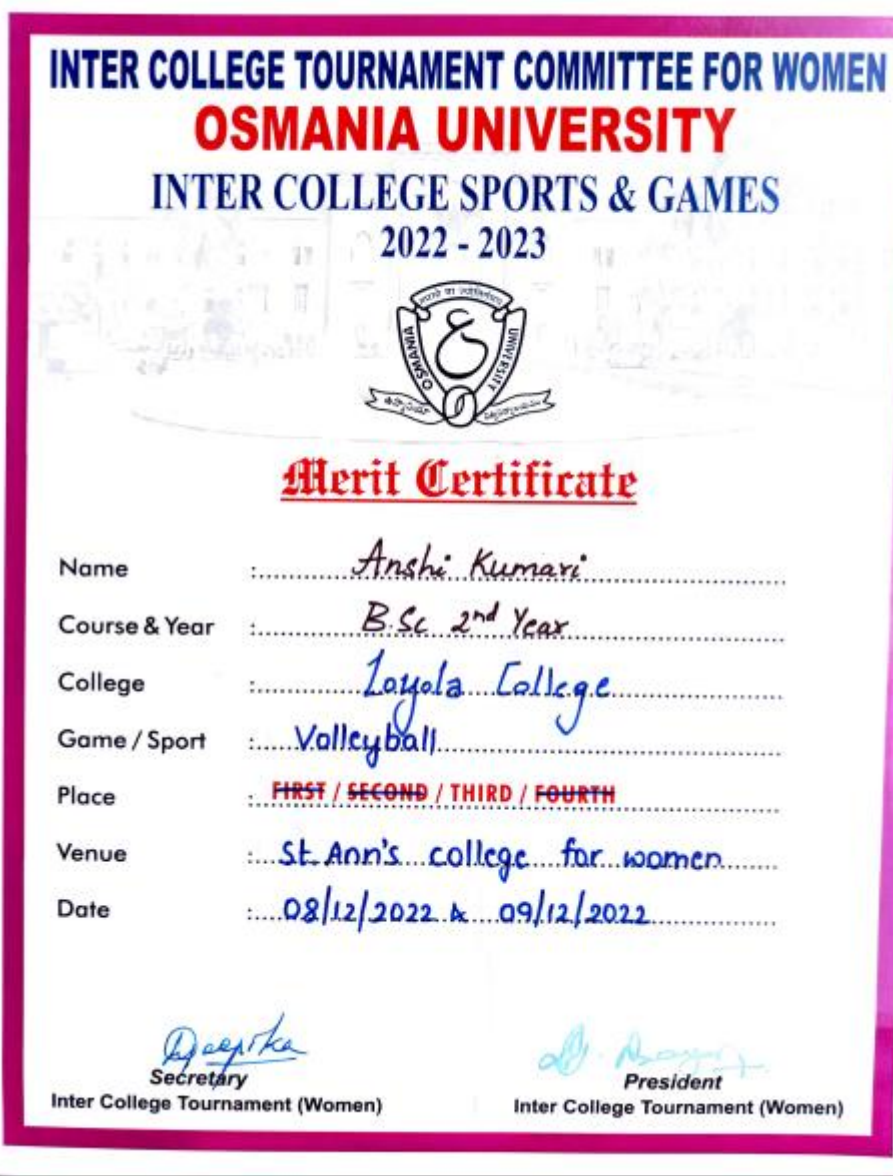 INTER COLLEGE TOURNAMENT COMMITTEE FOR WOMEN
OSMANIA UNIVERSITY
INTER COLLEGE SPORTS & GAMES
2022 - 2023
OSMANIA UNIVERSITY
Merit Certificate
Name : Anshi Kumari
Course & Year : B.Sc 2nd Year
College : Loyola College
Game / Sport : Volleyball
Place : FIRST / SECOND / THIRD / FOURTH
Venue : St. Ann's college for women
Date : 08/12/2022 & 09/12/2022
Deepika
Secretary President
Inter College Tournament (Women) Inter College Tournament (Women)